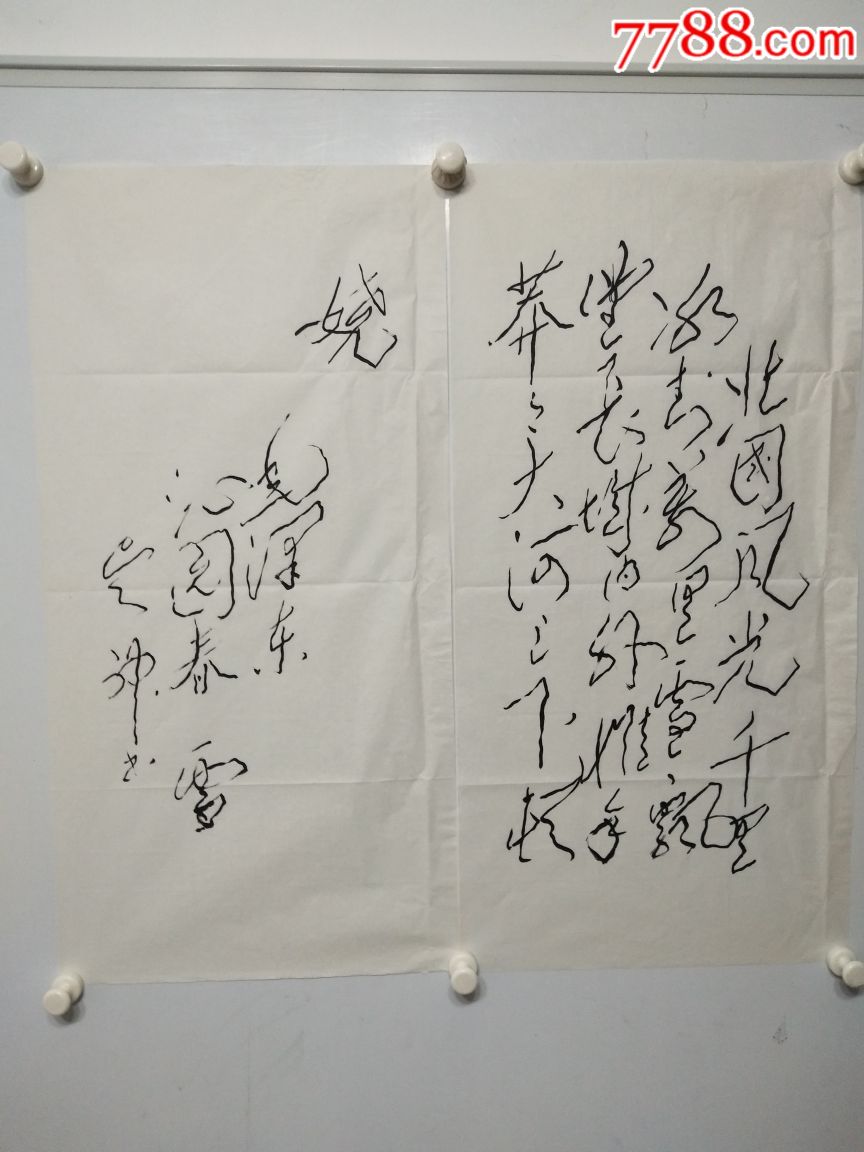 7788.com
北國风光千里
冰封萬里雪飘
望长城内外惟余
莽々大河上下顿
娆
毛泽东
沁园春雪
书